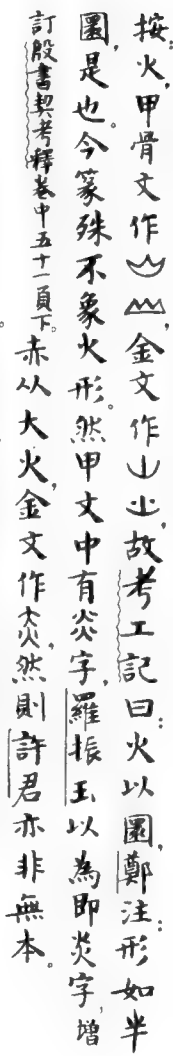 按：火，甲骨文作，金文作，故考工記曰：火以圜，鄭注：形如半
圜，是也。今篆殊不象火形。然甲文中有炎字，羅振玉以為即炎字，增
訂殷書契考釋卷中五十一頁下。赤从大火，金文作，然則許君亦非無本。